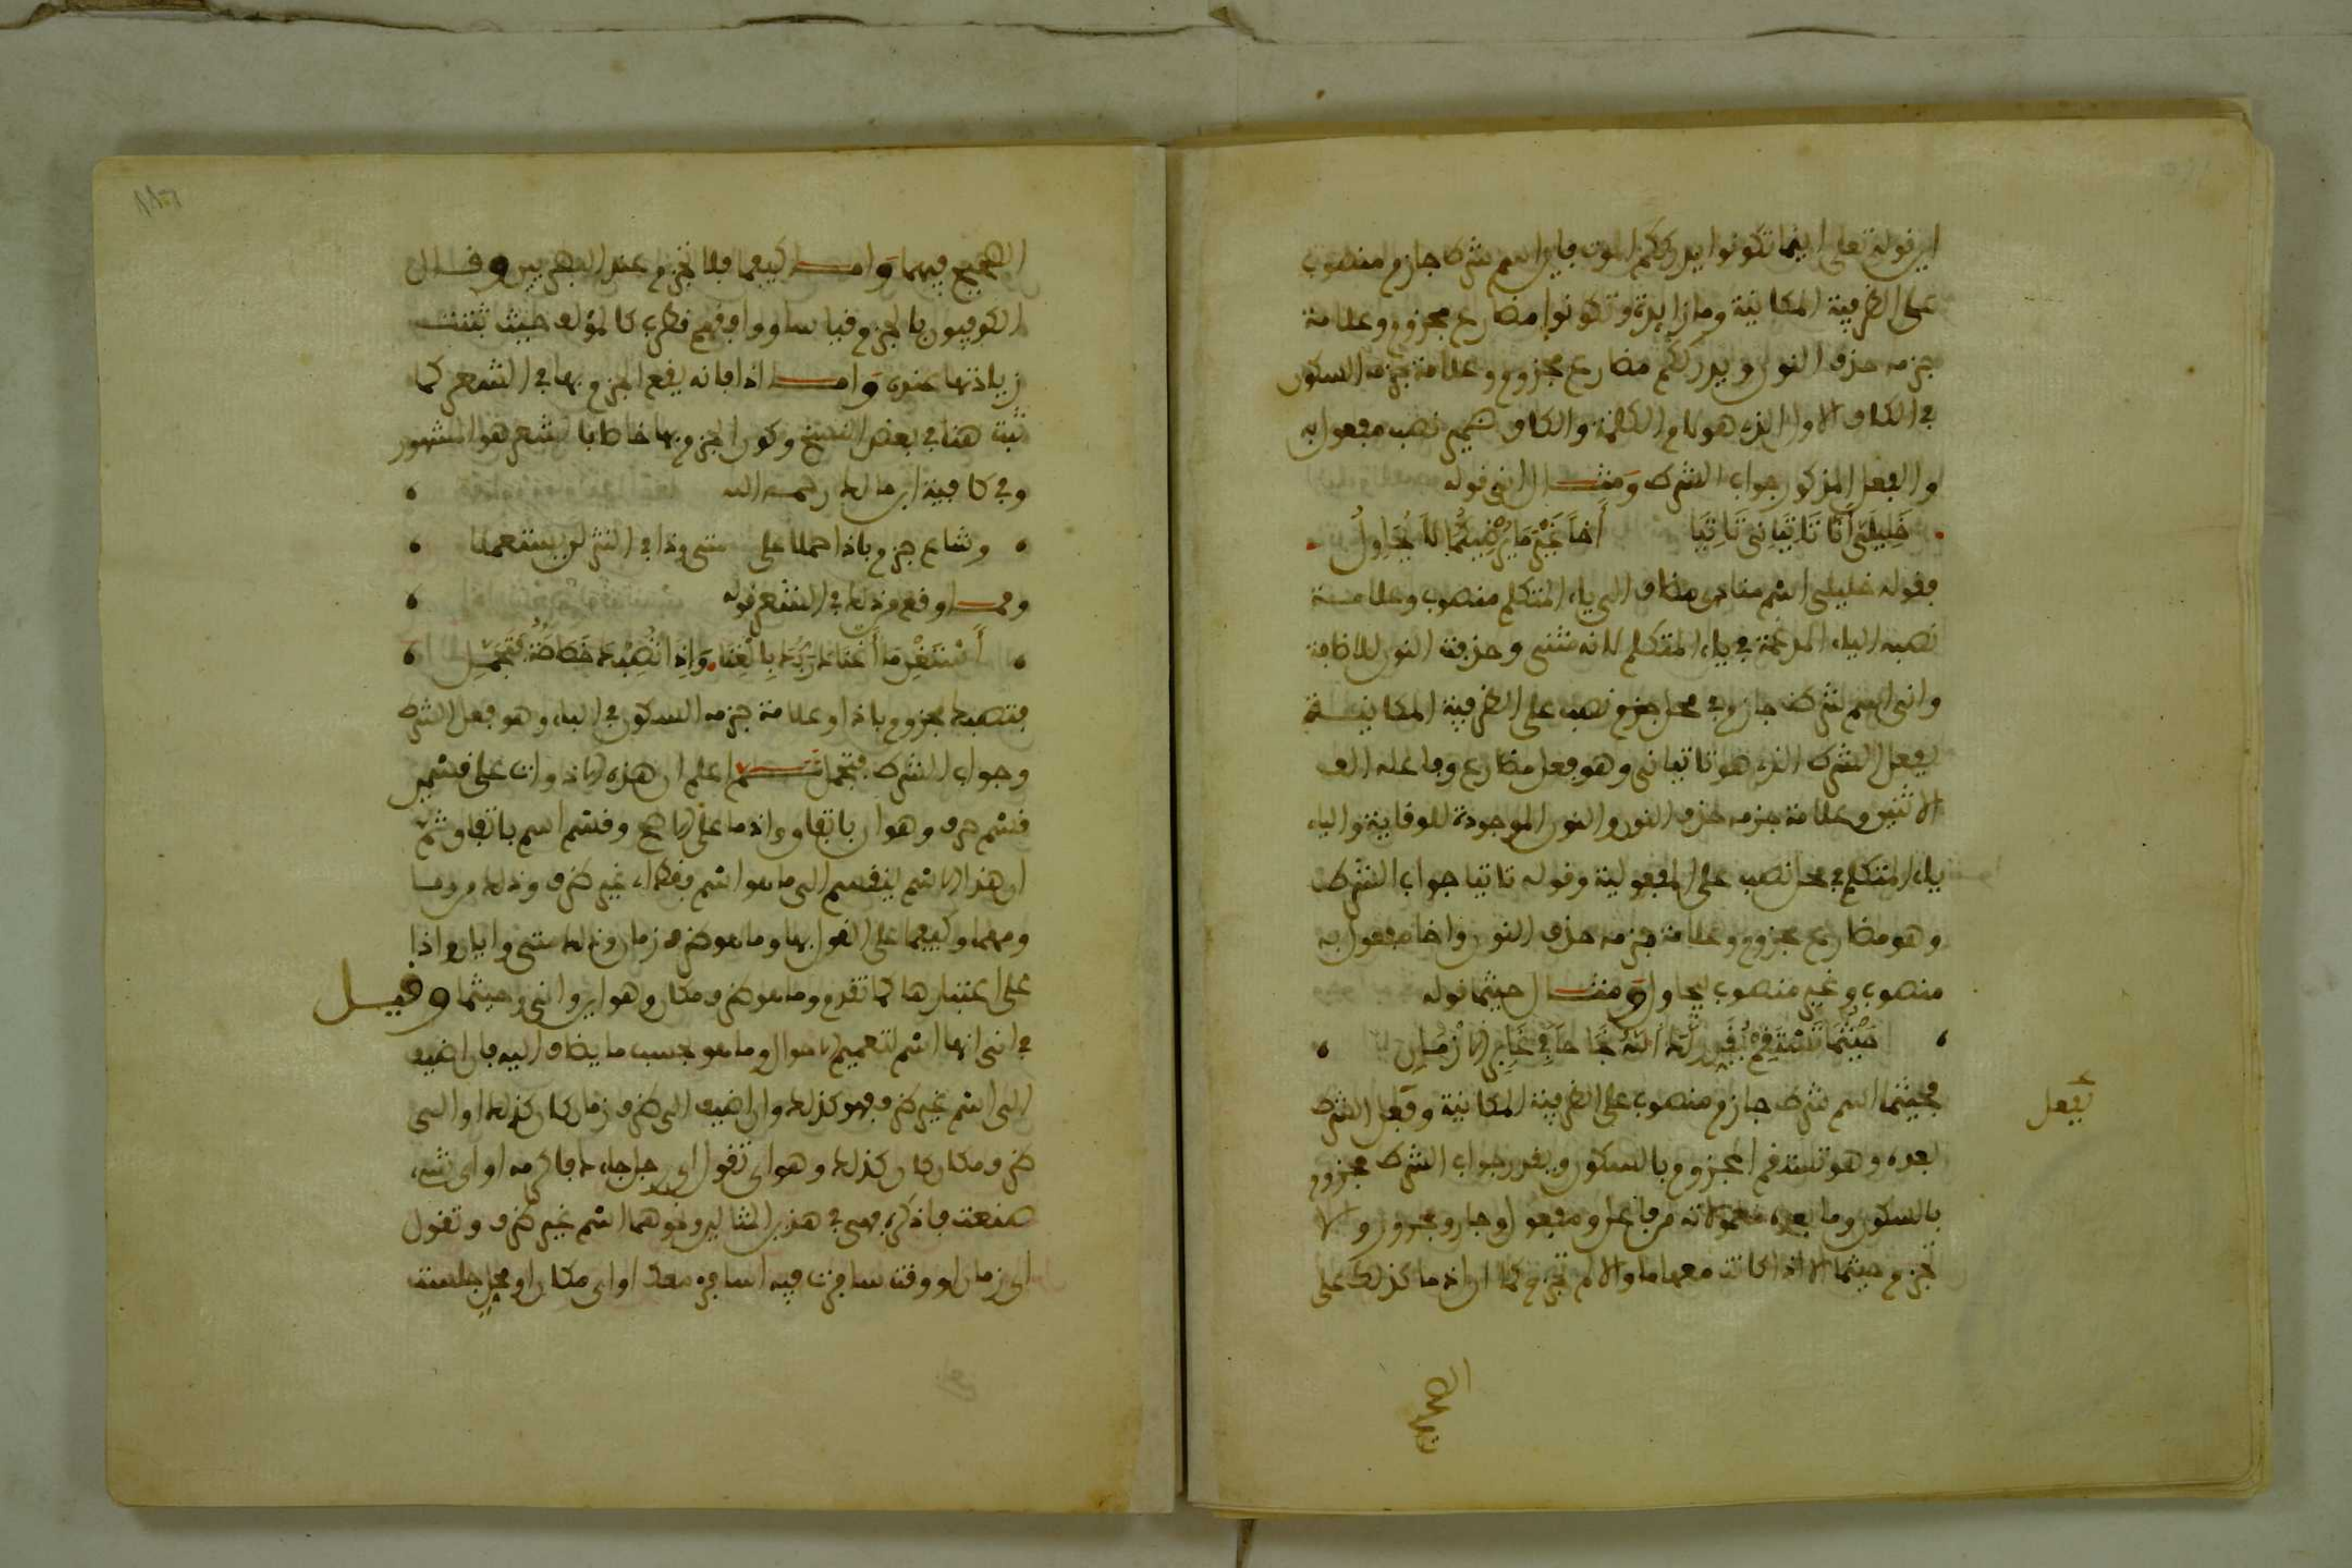 اين قوله تعلى اينما تكونوا يدرككم الموت فاين اسم شرط جازم منصوب
على الظرفية المكانية وما زايدة وتكونوا مضارع مجزوم وعلامة
جزمه حذف النون ويدرككم مضارع مجزوم وعلامة جزمه السكون
في الكاف الاول الذي هو لام الكلمة والكاف ضمير نصب مفعول به
والفعل المذكور جواب الشرط ومثـــال انى قوله
خَلِيلَيَّ أَنَّى تَاتِيَانِيَ تَاتِيَا أَخاً غَيْرَ مَا يُرْضِيكُمَا لَا يُحَاوِلُ
فقوله خليلي اسم منادى مضاف الى ياء المتكلم منصوب وعلامـــة
نصبه الياء المدغمة في ياء المتكلم لانه مثنى وحذفت النون للاضافة
وانى اسم شرط جازم في محل نصب على الظرفية المكانيـــة
بفعل الشرط الذي هو تاتياني وهو فعل مضارع وفاعله الف
الاثنين وعلامة جزمه حذف النون والنون الموجودة للوقاية والياء
ياء المتكلم في محل نصب على المفعولية وقوله تاتيا جواب الشرط
وهو مضارع مجزوم وعلامة جزمه حذف النون واخا مفعول به
منصوب وغير منصوب ليحاول ومثـــال حيثما قوله
حَيْثُمَا تَسْتَقِمْ يُقَدِّرْ لَكَ اللهُ نَجَاحاً فِي غَابِرِ الازْمَانِ
فحيثما اسم شرط جازم منصوب على الظرفية المكانية وفعل الشرط
بعده وهو تستقم مجزوم بالسكون ويقدر جواب الشرط مجزوم
بالسكون وما بعده معمولاته من فاعل ومفعول وجار ومجرور ولا
تجزم حيثما الا اذا كانت معها ما والا لم تجزم كما ان اذ ما كذلك على
بفعل
الصحيح
الصحيح فيهما وامـــا كيفما فلا تجزم عند البصريين وقـــال
الكوفيون بالجزم قياسا ووافقهم قطرب كالمؤلف حيث ثبتت
زيادتها عنده وامـــا اذا فانه يقع الجزم بها في الشعر كما
ثبت هنا في بعض النسخ وكون الجزم بها خاصا بالشعر هو المشهور
وفي كافية ابن مالك رحمـه الله
وشاع جزم باذا حملا على متى وذا في النثر لن يستعملا
وممـــا وقع من ذلك في الشعر قوله
أَسْتَغْنِ مَا أَغْنَاكَ رَبُّكَ بِالْغِنَا وَإِذَا تُصِبْكَ خَصَاصَةٌ فَتَجَمَّلِ
فتصبك مجزوم باذا وعلامة جزمه السكون في الباء وهو فعل الشرط
وجواب الشرط فتجمل ثـــم اعلم ان هذه الادوات على قسمين
قسم حرف وهو ان باتفاق واذ ما على الاصح وقسم اسم باتفاق ثم
ان هذا الاسم ينقسم الى ما هو اسم فقط غير ظرف وذلك من وما
ومهما وكيفما على القول بها وما هو ظرف زمان وذلك متى وايان واذا
على اعتبارها كما تقدم وما هو ظرف مكان وهو اين وانى وحيثما وقيـــل
في انى انها اسم لتعميم الاحوال وما هو بحسب ما يضاف اليه فان اضيف
الى اسم غير ظرف فهو كذلك وان اضيف الى ظرف زمان كان كذلك او الى
ظرف مكان كان كذلك وهو اي تقول اي رجل جاءك فاكرمه او اي شيء
صنعت فاذكره فهي في هذين المثالين ونحوهما اسم غير ظرف وتقول
اي زمان او وقت سافرت فيه اسافر معك او اي مكان او محل جلست